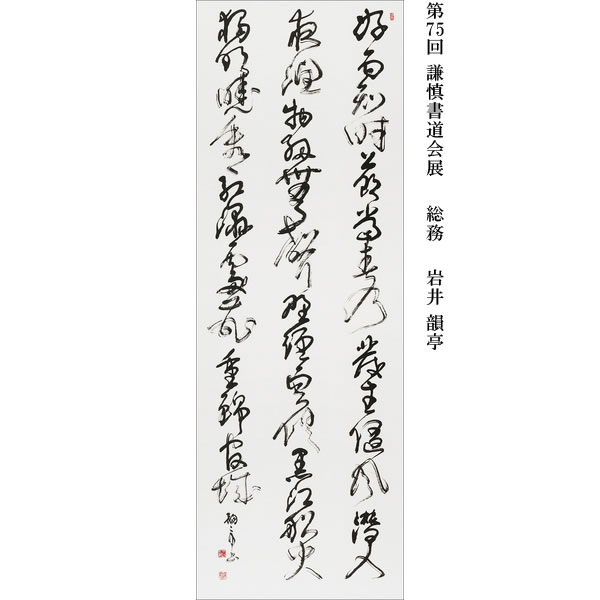 第75回 謙慎書道会展 総務 岩井 韻亭
好雨知時節當春乃發生随風潛入
夜潤物細無聲野徑雲俱黑江船火
獨明曉看紅濕處花重錦官城 韻亭書